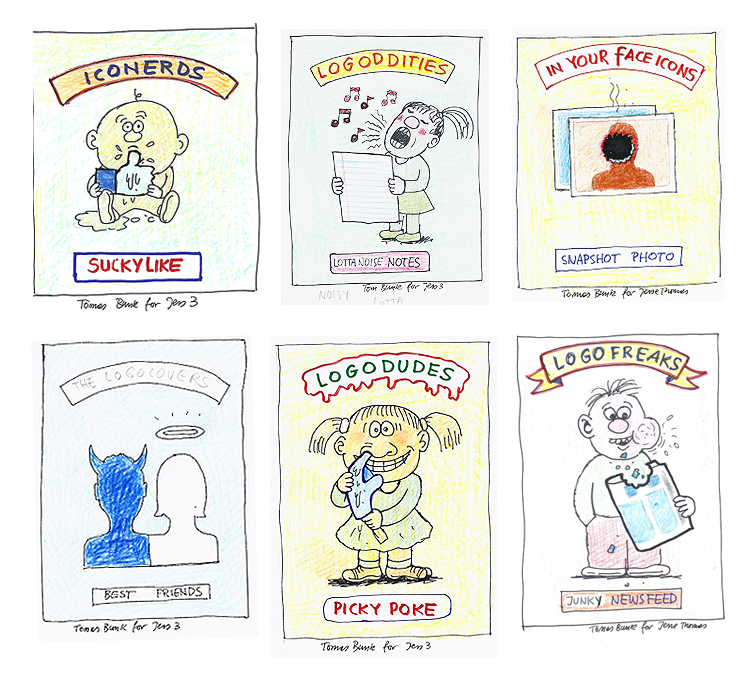 ICONERDS
SUCKY LIKE
Tomas Bunk for Jess 3
LOGODDITIES
LOTTA NOISE NOTES
Tom Bunk for Jess 3
NOISY LOTTA
IN YOUR FACE ICONS
SNAPSHOT PHOTO
Tomas Bunk for Jesse Thomas
THE LOGOLOVERS
BEST FRIENDS
Tomas Bunk for Jess 3
LOGODUDES
PICKY POKE
Tomas Bunk for Jess 3
LOGOFREAKS
JUNKY NEWSFEED
Tomas Bunk for Jesse Thomas